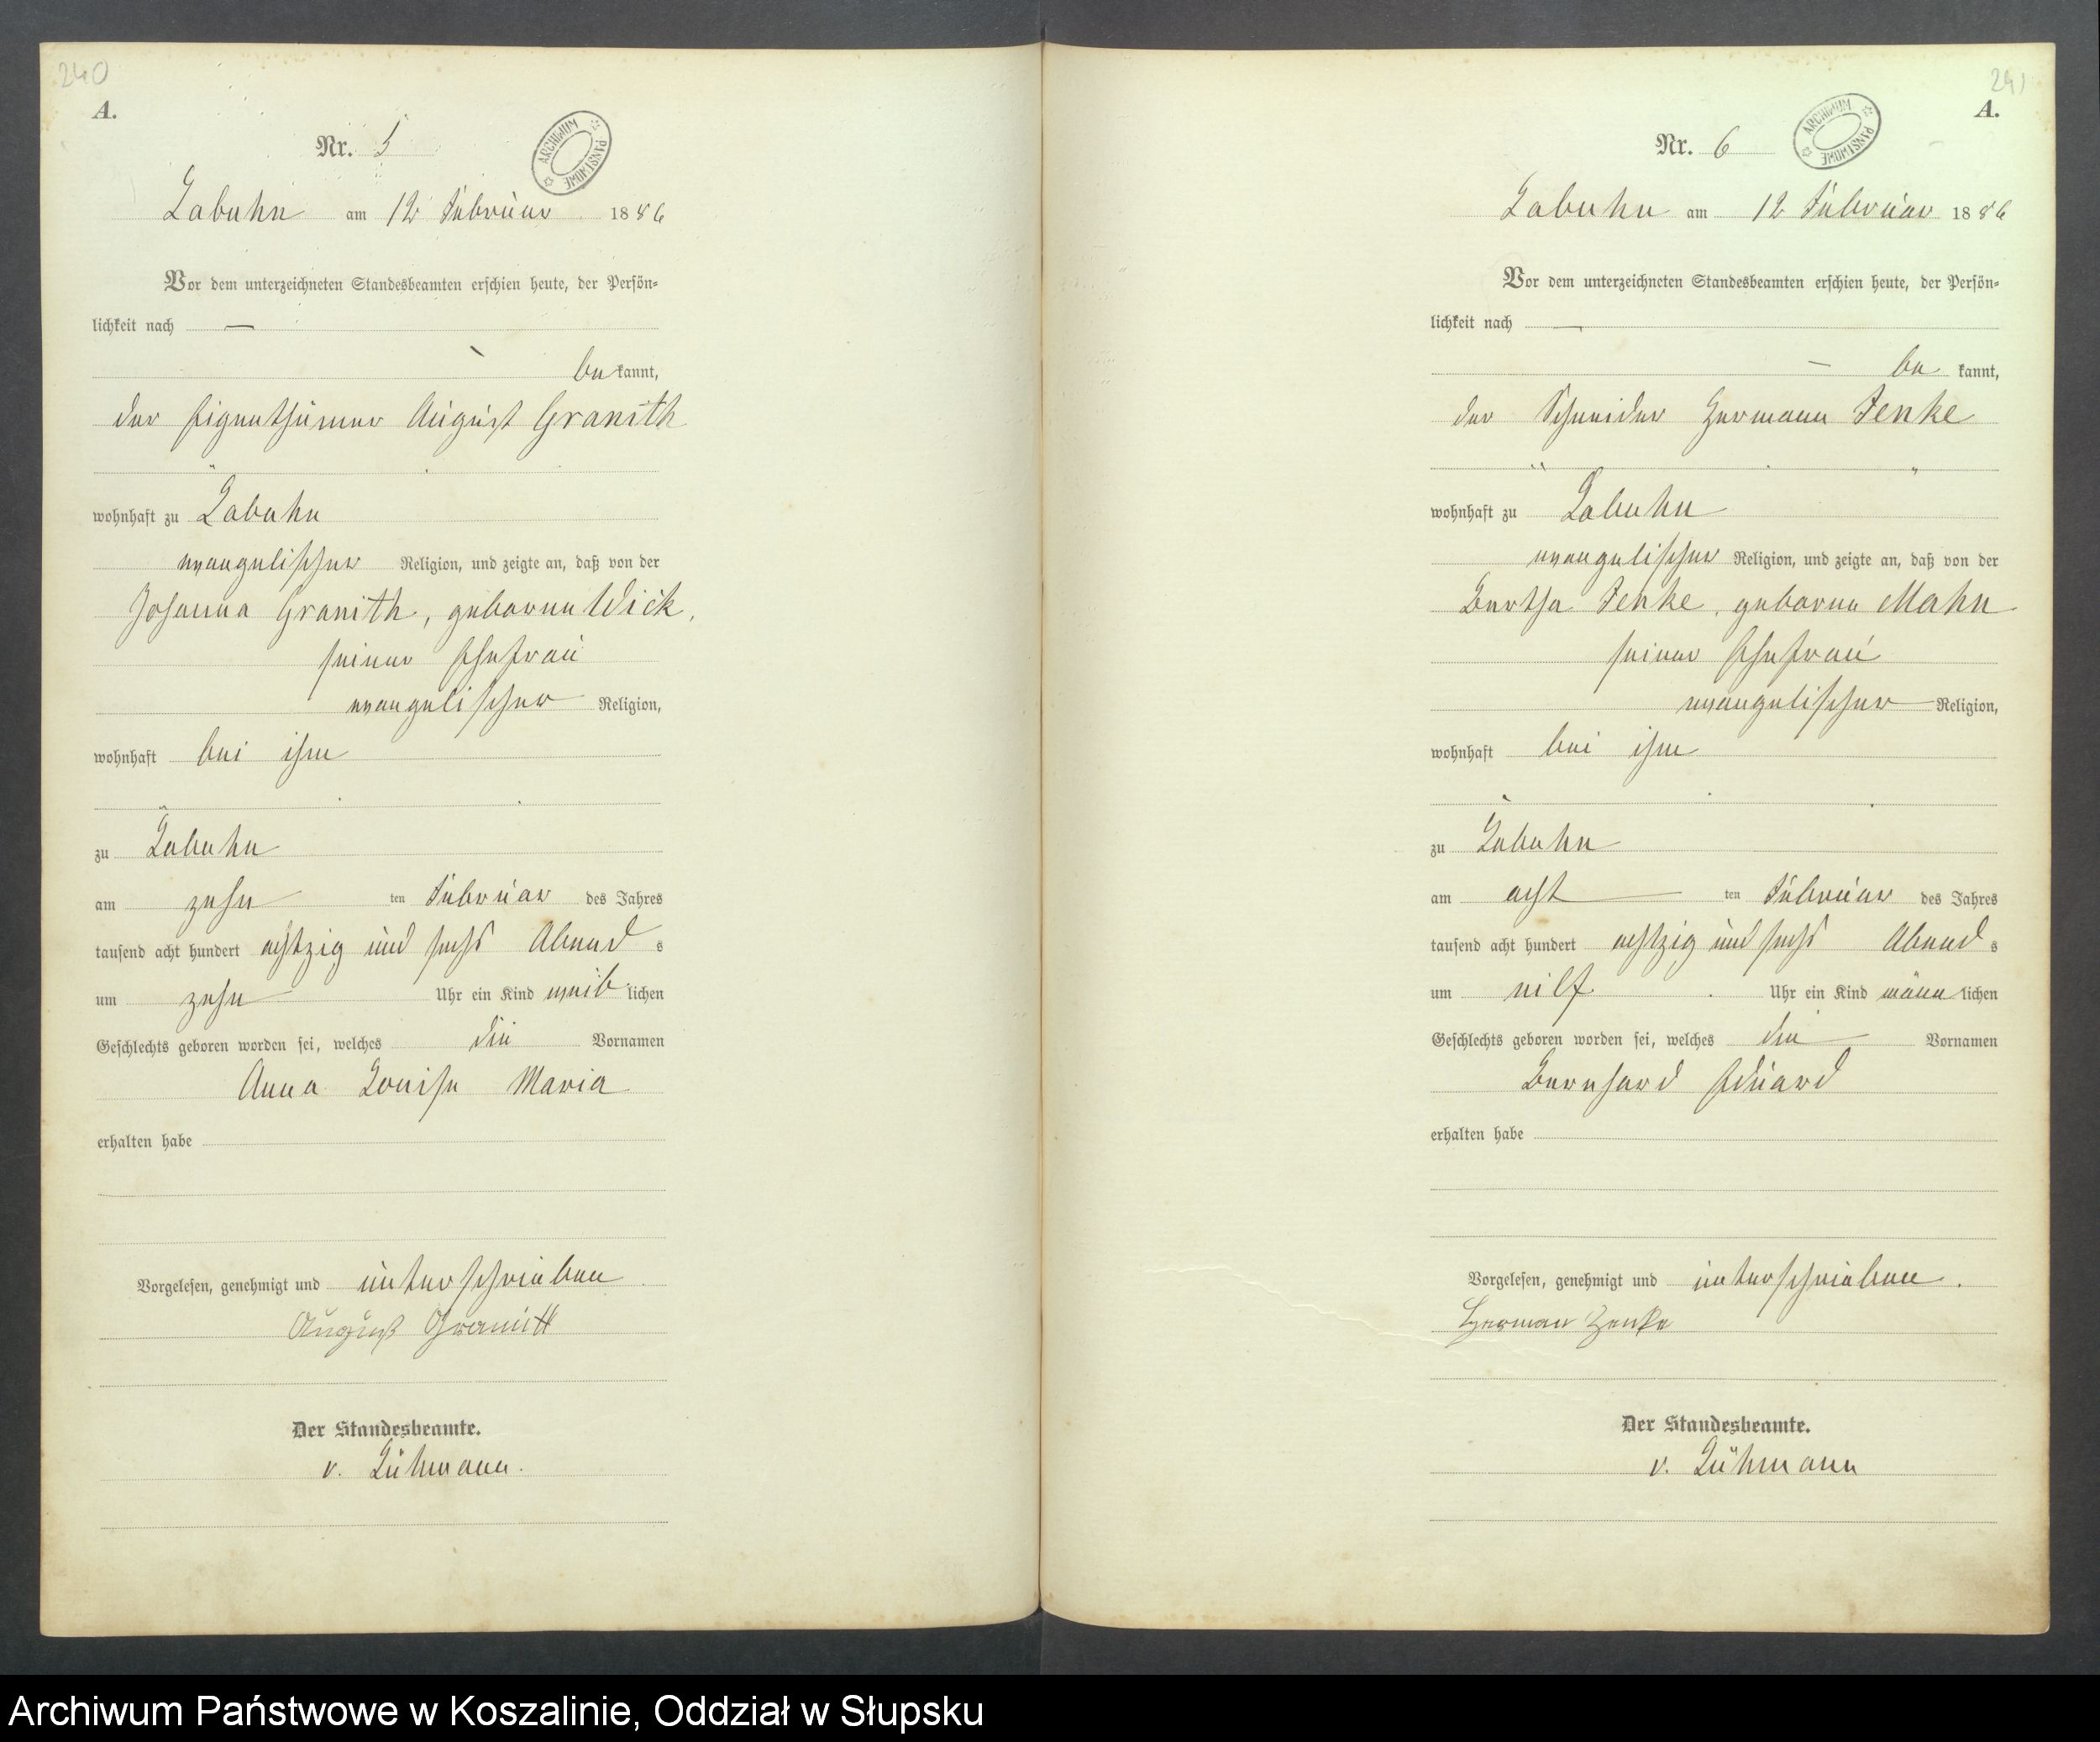 240
A.
Nr. 5
ARCHIWUM PAŃSTWOWE
Labuhn am 12 Februar 1886
Vor dem unterzeichneten Standesbeamten erschien heute, der Persön-
lichkeit nach —
be kannt,
der Eigenthümer August Granith
wohnhaft zu Labuhn
evangelischer Religion, und zeigte an, daß von der
Johanna Granith, geborene Wick,
seiner Ehefrau
evangelischer Religion,
wohnhaft bei ihm
zu Labuhn
am zehn ten Februar des Jahres
tausend acht hundert achtzig und sechs Abend s
um zehn Uhr ein Kind weib lichen
Geschlechts geboren worden sei, welches die Vornamen
Anna Louise Maria
erhalten habe
Vorgelesen, genehmigt und unterschrieben.
August Granitt
Der Standesbeamte.
v. Lühmann.
241
A.
Nr. 6
ARCHIWUM PAŃSTWOWE
Labuhn am 12 Februar 1886
Vor dem unterzeichneten Standesbeamten erschien heute, der Persön-
lichkeit nach —
— be kannt,
der Schneider Hermann Zenke
wohnhaft zu Labuhn
evangelischer Religion, und zeigte an, daß von der
Bertha Zenke, geborene Mahn
seiner Ehefrau
evangelischer Religion,
wohnhaft bei ihm
zu Labuhn
am acht ten Februar des Jahres
tausend acht hundert achtzig und sechs Abend s
um eilf Uhr ein Kind männ lichen
Geschlechts geboren worden sei, welches die Vornamen
Bernhard Eduard
erhalten habe
Vorgelesen, genehmigt und unterschrieben.
Herman Zenke
Der Standesbeamte.
v. Lühmann
Archiwum Państwowe w Koszalinie, Oddział w Słupsku